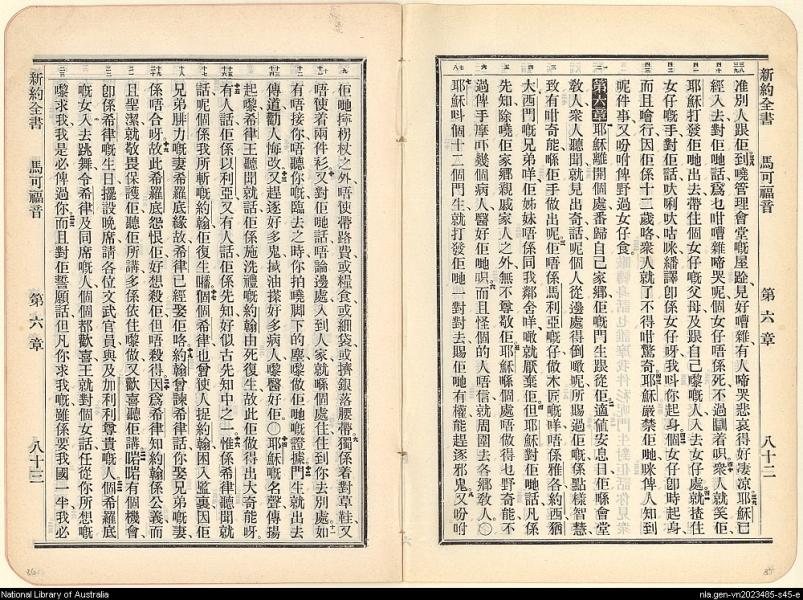 新約全書 馬可福音 第六章 八十二
准別人跟佢到嘵管理會堂嘅屋躼見好嘈雜有人啼哭悲哀得好凄凉耶穌已
經入去對佢哋話爲乜咁嘈雜啼哭呢個女仔唔係死不過瞓着呮衆人就笑佢
耶穌打發佢哋出去帶住個女仔嘅父母及跟自己嚟嘅人入去女仔處就揸住
女仔嘅手對佢話吠唎吠咕咪繙譯卽係女仔呀我呌你起身個女仔卽時起身
而且噲行因佢係十二歲咯衆人就了不得咁驚奇耶穌嚴禁佢哋咪俾人知到
呢件事又吩咐俾野過女仔食
第六章耶穌離開個處番歸自己家鄉佢嘅門生跟從佢適値安息日佢喺會堂
敎人衆人聽聞就見出奇話呢個人從邊處得倒嘅呢所賜過佢嘅係點樣智慧
致有咁奇能喺佢手做出呢佢唔係馬利亞嘅仔做木匠嘅咩唔係雅各約西猶
大西門嘅兄弟咩佢姊妹唔係同我鄰舍咩噉就厭棄佢但耶穌對佢哋話凡係
先知除嘵佢家鄉親戚家人之外無不尊敬佢耶穌喺個處唔做得乜野奇能不
過俾手摩吓幾個病人醫好佢哋呮而且怪個的人唔信就周圍去各鄉敎人〇
耶穌呌個十二個門生就打發佢哋一對對去賜佢哋有權能趕逐邪鬼又吩咐
佢哋擰枴杖之外唔使帶路費或糧食或細袋或擠銀落腰帶獨係着對草鞋又
唔使着兩件衫又對佢哋話唔論邊處入到人家就喺個處住住到你去別處如
有唔接你唔聽你嘅臨去之時你拍嘵脚下的塵嚟做佢哋嘅證據門生就出去
傳道勸人悔改又趕逐好多鬼搣油搽好多病人嚟醫好佢〇耶穌嘅名聲傳揚
起嚟希律王聽聞就話佢係施洗禮嘅約翰由死復生故此佢做得出大奇能呀
有人話佢係以利亞又有人話佢係先知好似古先知中之一惟係希律聽聞就
話呢個係我所斬嘅約翰佢復生囉個個希律也曾使人捉約翰困入監裏因佢
兄弟腓力嘅妻希羅底緣故希律已經娶佢咯約翰曾諫希律話你娶兄弟嘅妻
係唔合呀故此希羅底怨恨佢好想殺佢但唔殺得因爲希律知約翰係公義而
且聖潔就敬畏保護佢聽佢所講多係依住嚟做又歡喜聽佢講啱啱有個機會
卽係希律嘅生日擺設晚席請各位文武官員與及加利利尊貴嘅人個希羅底
嘅女入去跳舞令希律及同席嘅人個個都歡喜王就對個女話任從你所想嘅
嚟求我我是必俾過你而且對佢誓願話但凡你求我嘅雖係要我國一半我必
新約全書 馬可福音 第六章 八十三
National Library of Australia
nla.gen-vn2023485-s45-e